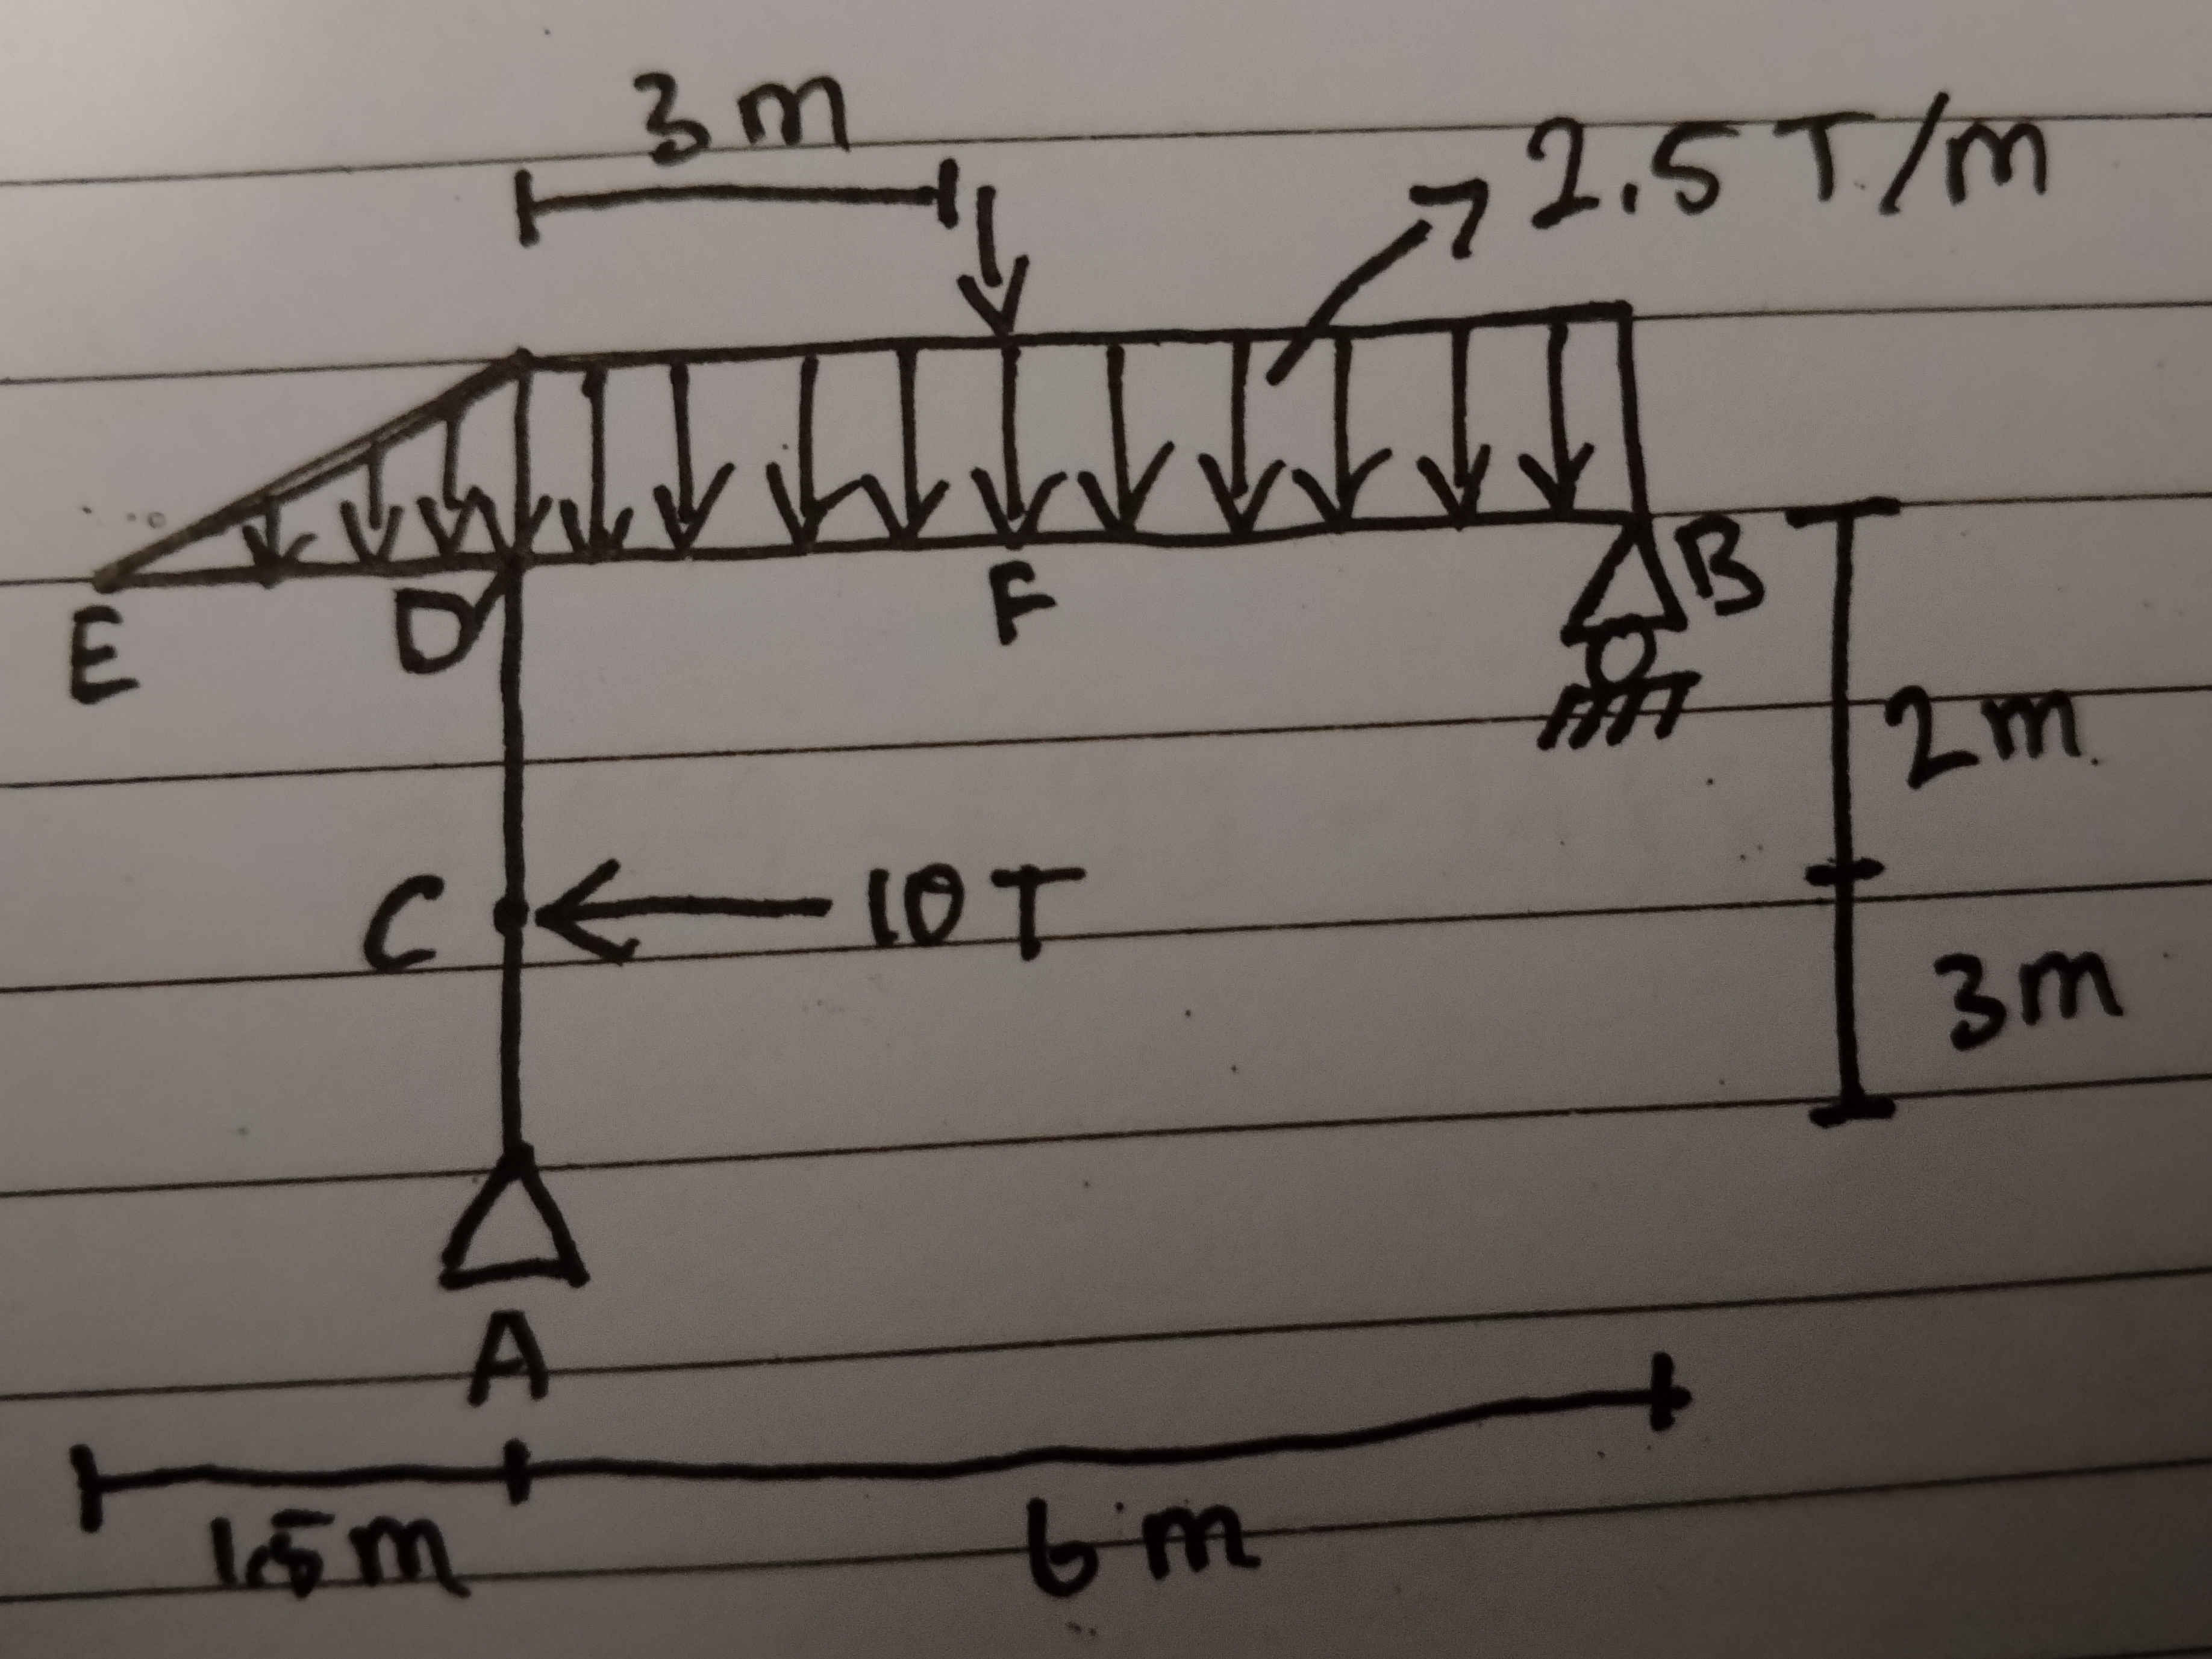 3 m
2.5 T/m
E
D
F
B
2m
C
10 T
3m
A
1.5 m
6 m